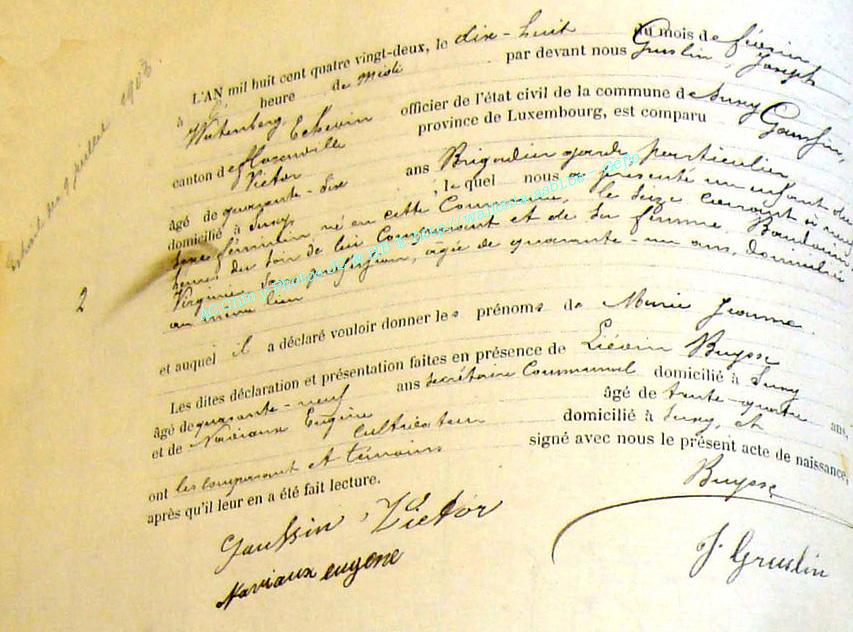 L'AN mil huit cent quatre vingt-deux, le dix-huit du mois de février
à heure de Midi par devant nous Gruslin, Joseph
Watenberg Echevin officier de l'état civil de la commune de Suxy
canton de Florenville province de Luxembourg, est comparu Gaussin,
Victor
âgé de quarante-six ans Brigadier garde particulier
domicilié à Suxy, le quel nous a présenté un enfant du
sexe féminin né en cette Commune, le seize courant à neuf
heures du soir de lui Comparant et de sa femme, Baudouin
Virginie sans profession, âgée de quarante-un ans, domiciliée
au même lieu
et auquel il a déclaré vouloir donner les prénoms de Marie Jeanne.
Les dites déclaration et présentation faites en présence de Liévin Buysse
âgé de quarante-neuf ans Secrétaire Communal domicilié à Suxy
et de Naviaux Eugène âgé de trente-quatre ans,
cultivateur domicilié à Suxy, et
ont les comparant et témoins signé avec nous le présent acte de naissance,
après qu'il leur en a été fait lecture.
Gaussin, Victor
Buysse
Naviaux eugene
J. Gruslin
2
1903